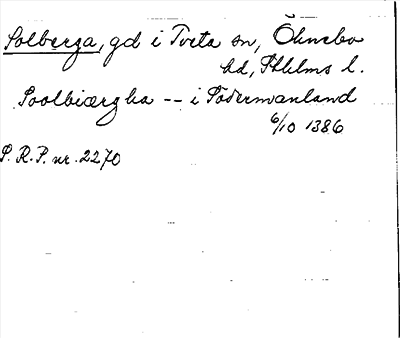 Solberga, gd i Tveta sn, Öknebo
hd, Sthlms l.
Soolbiærgha -- i Södermanland
6/10 1386
S.R.P. nr. 2270